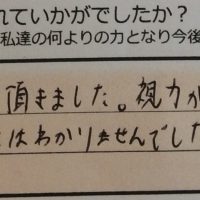 れていかがでしたか？
私達の何よりの力となり今後
頂きました。視力が
はわかりませんでした